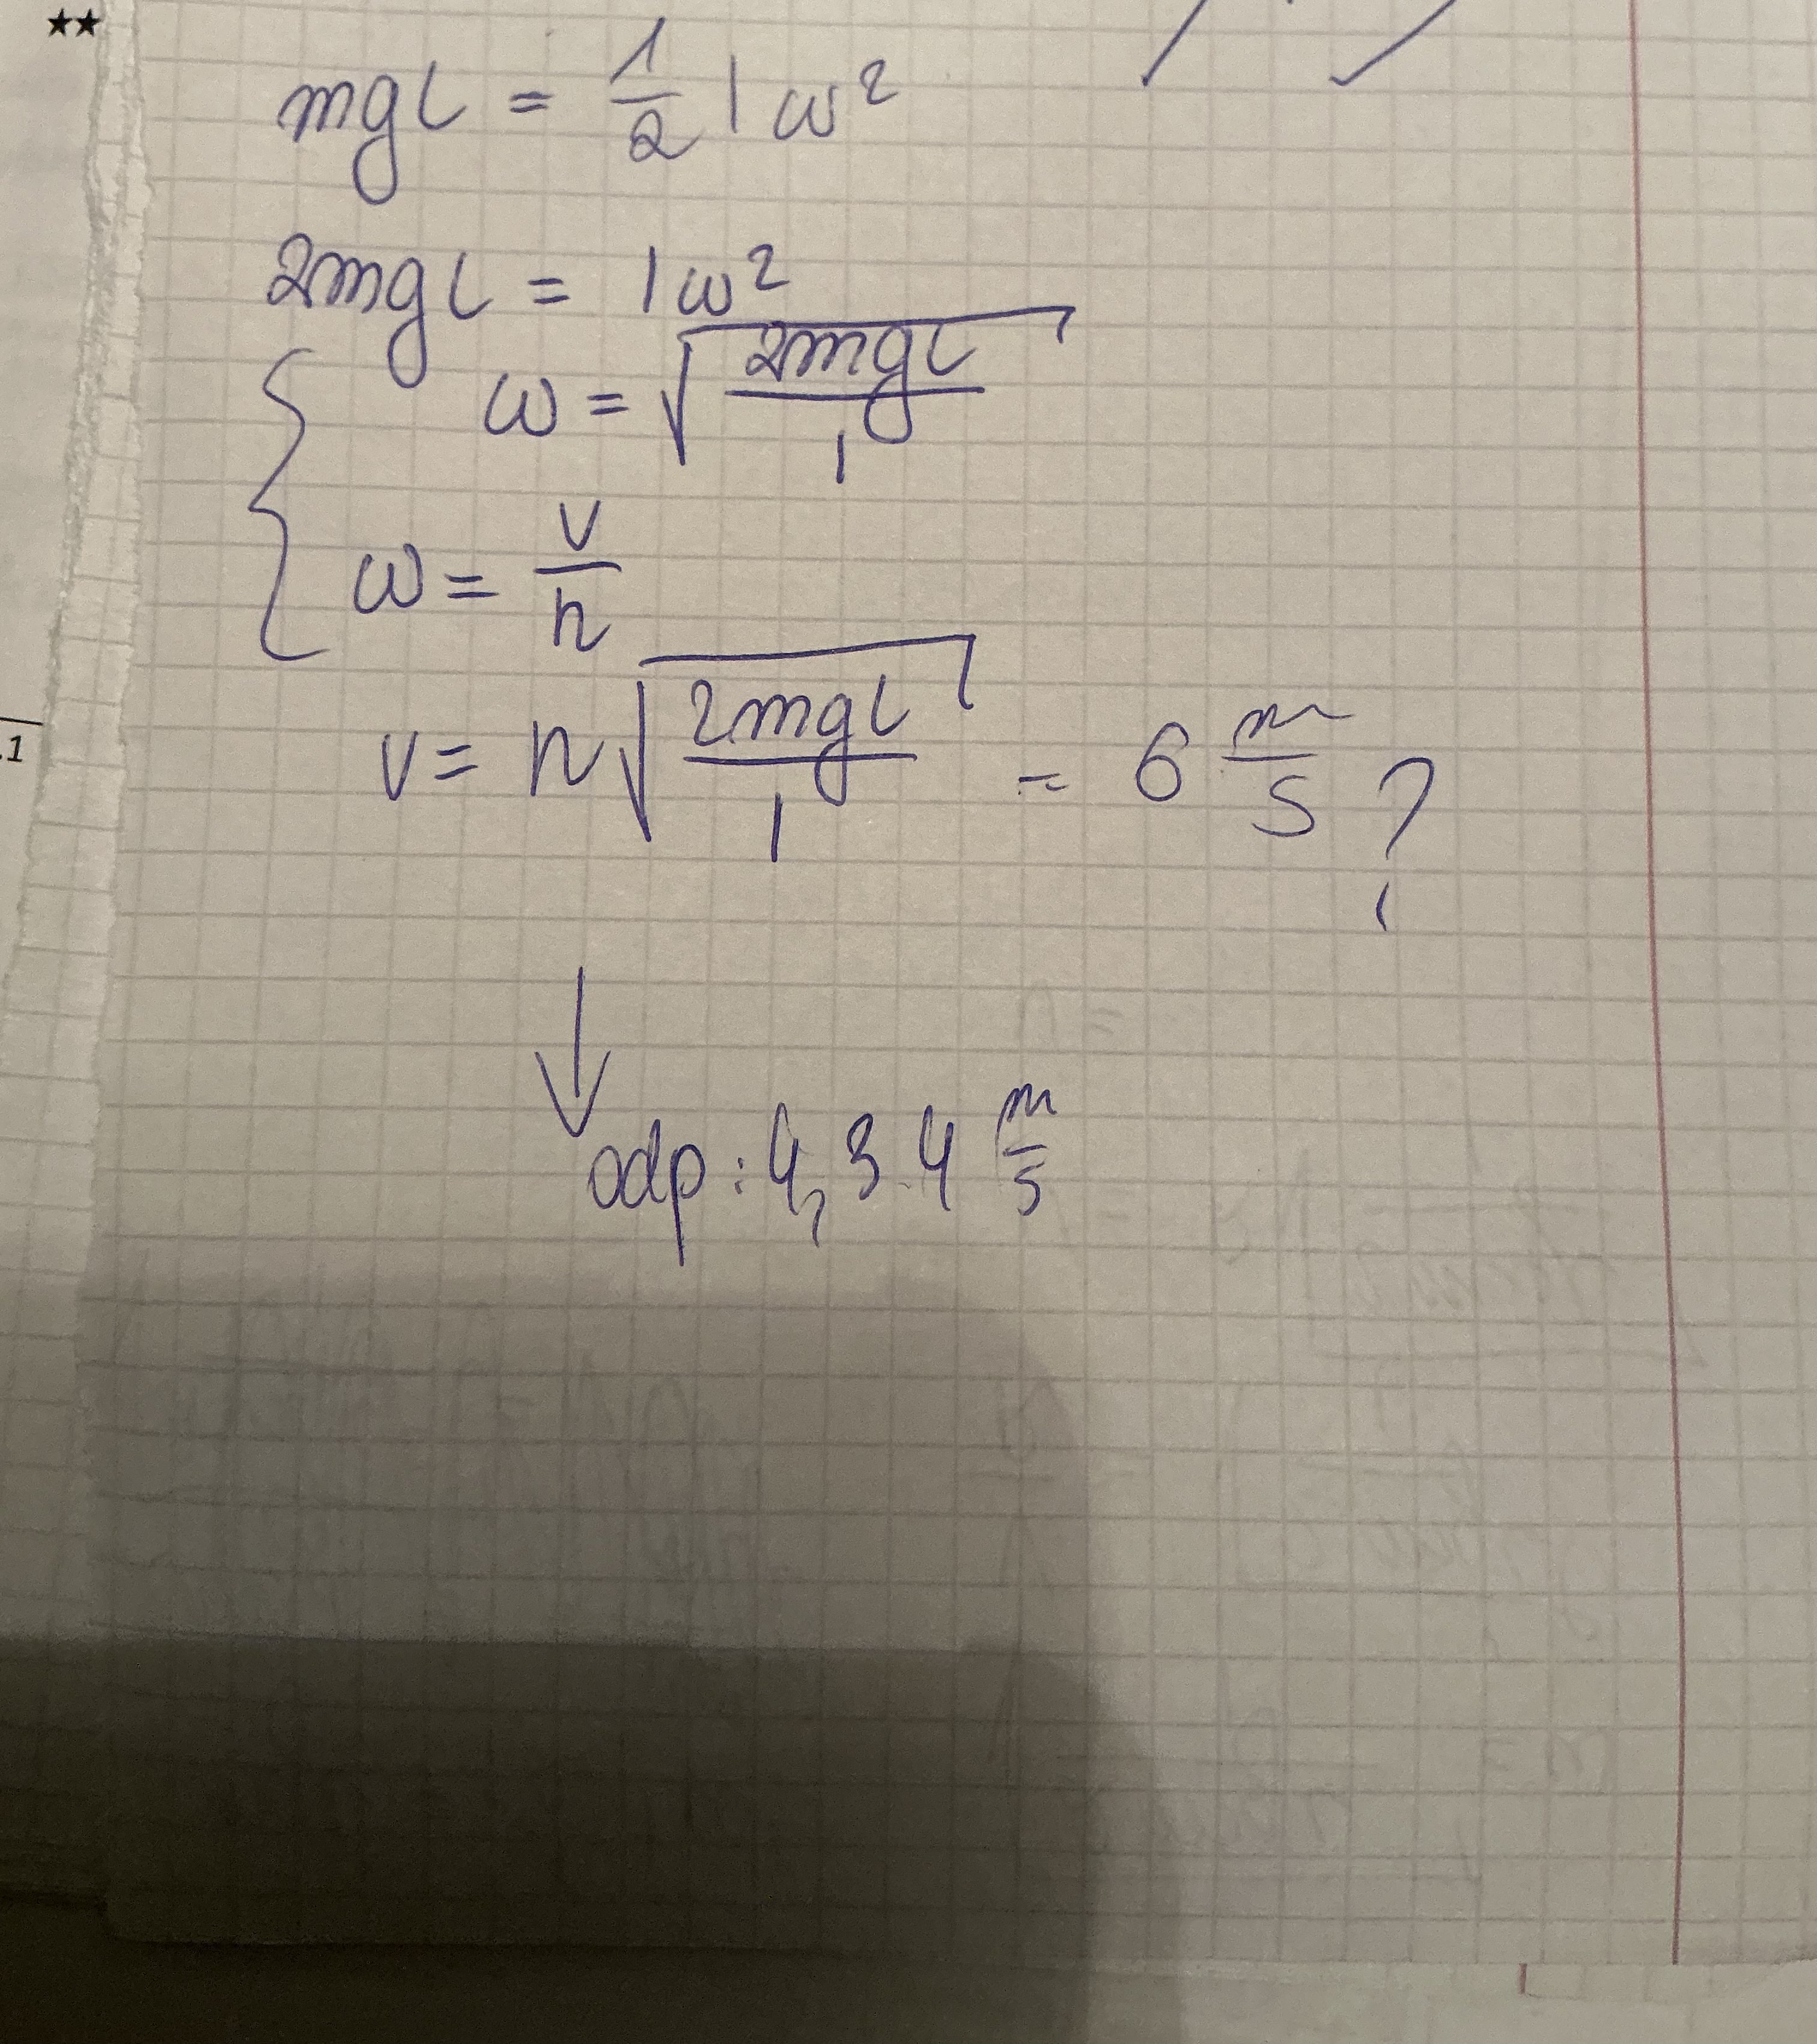 ★★
mgl = 1/2 I ω²
2mgl = Iω²
ω = √(2mgl/I)
ω = v/r
.1
v = r√(2mgl/I) = 6 m/s ?
odp: 4,34 m/s